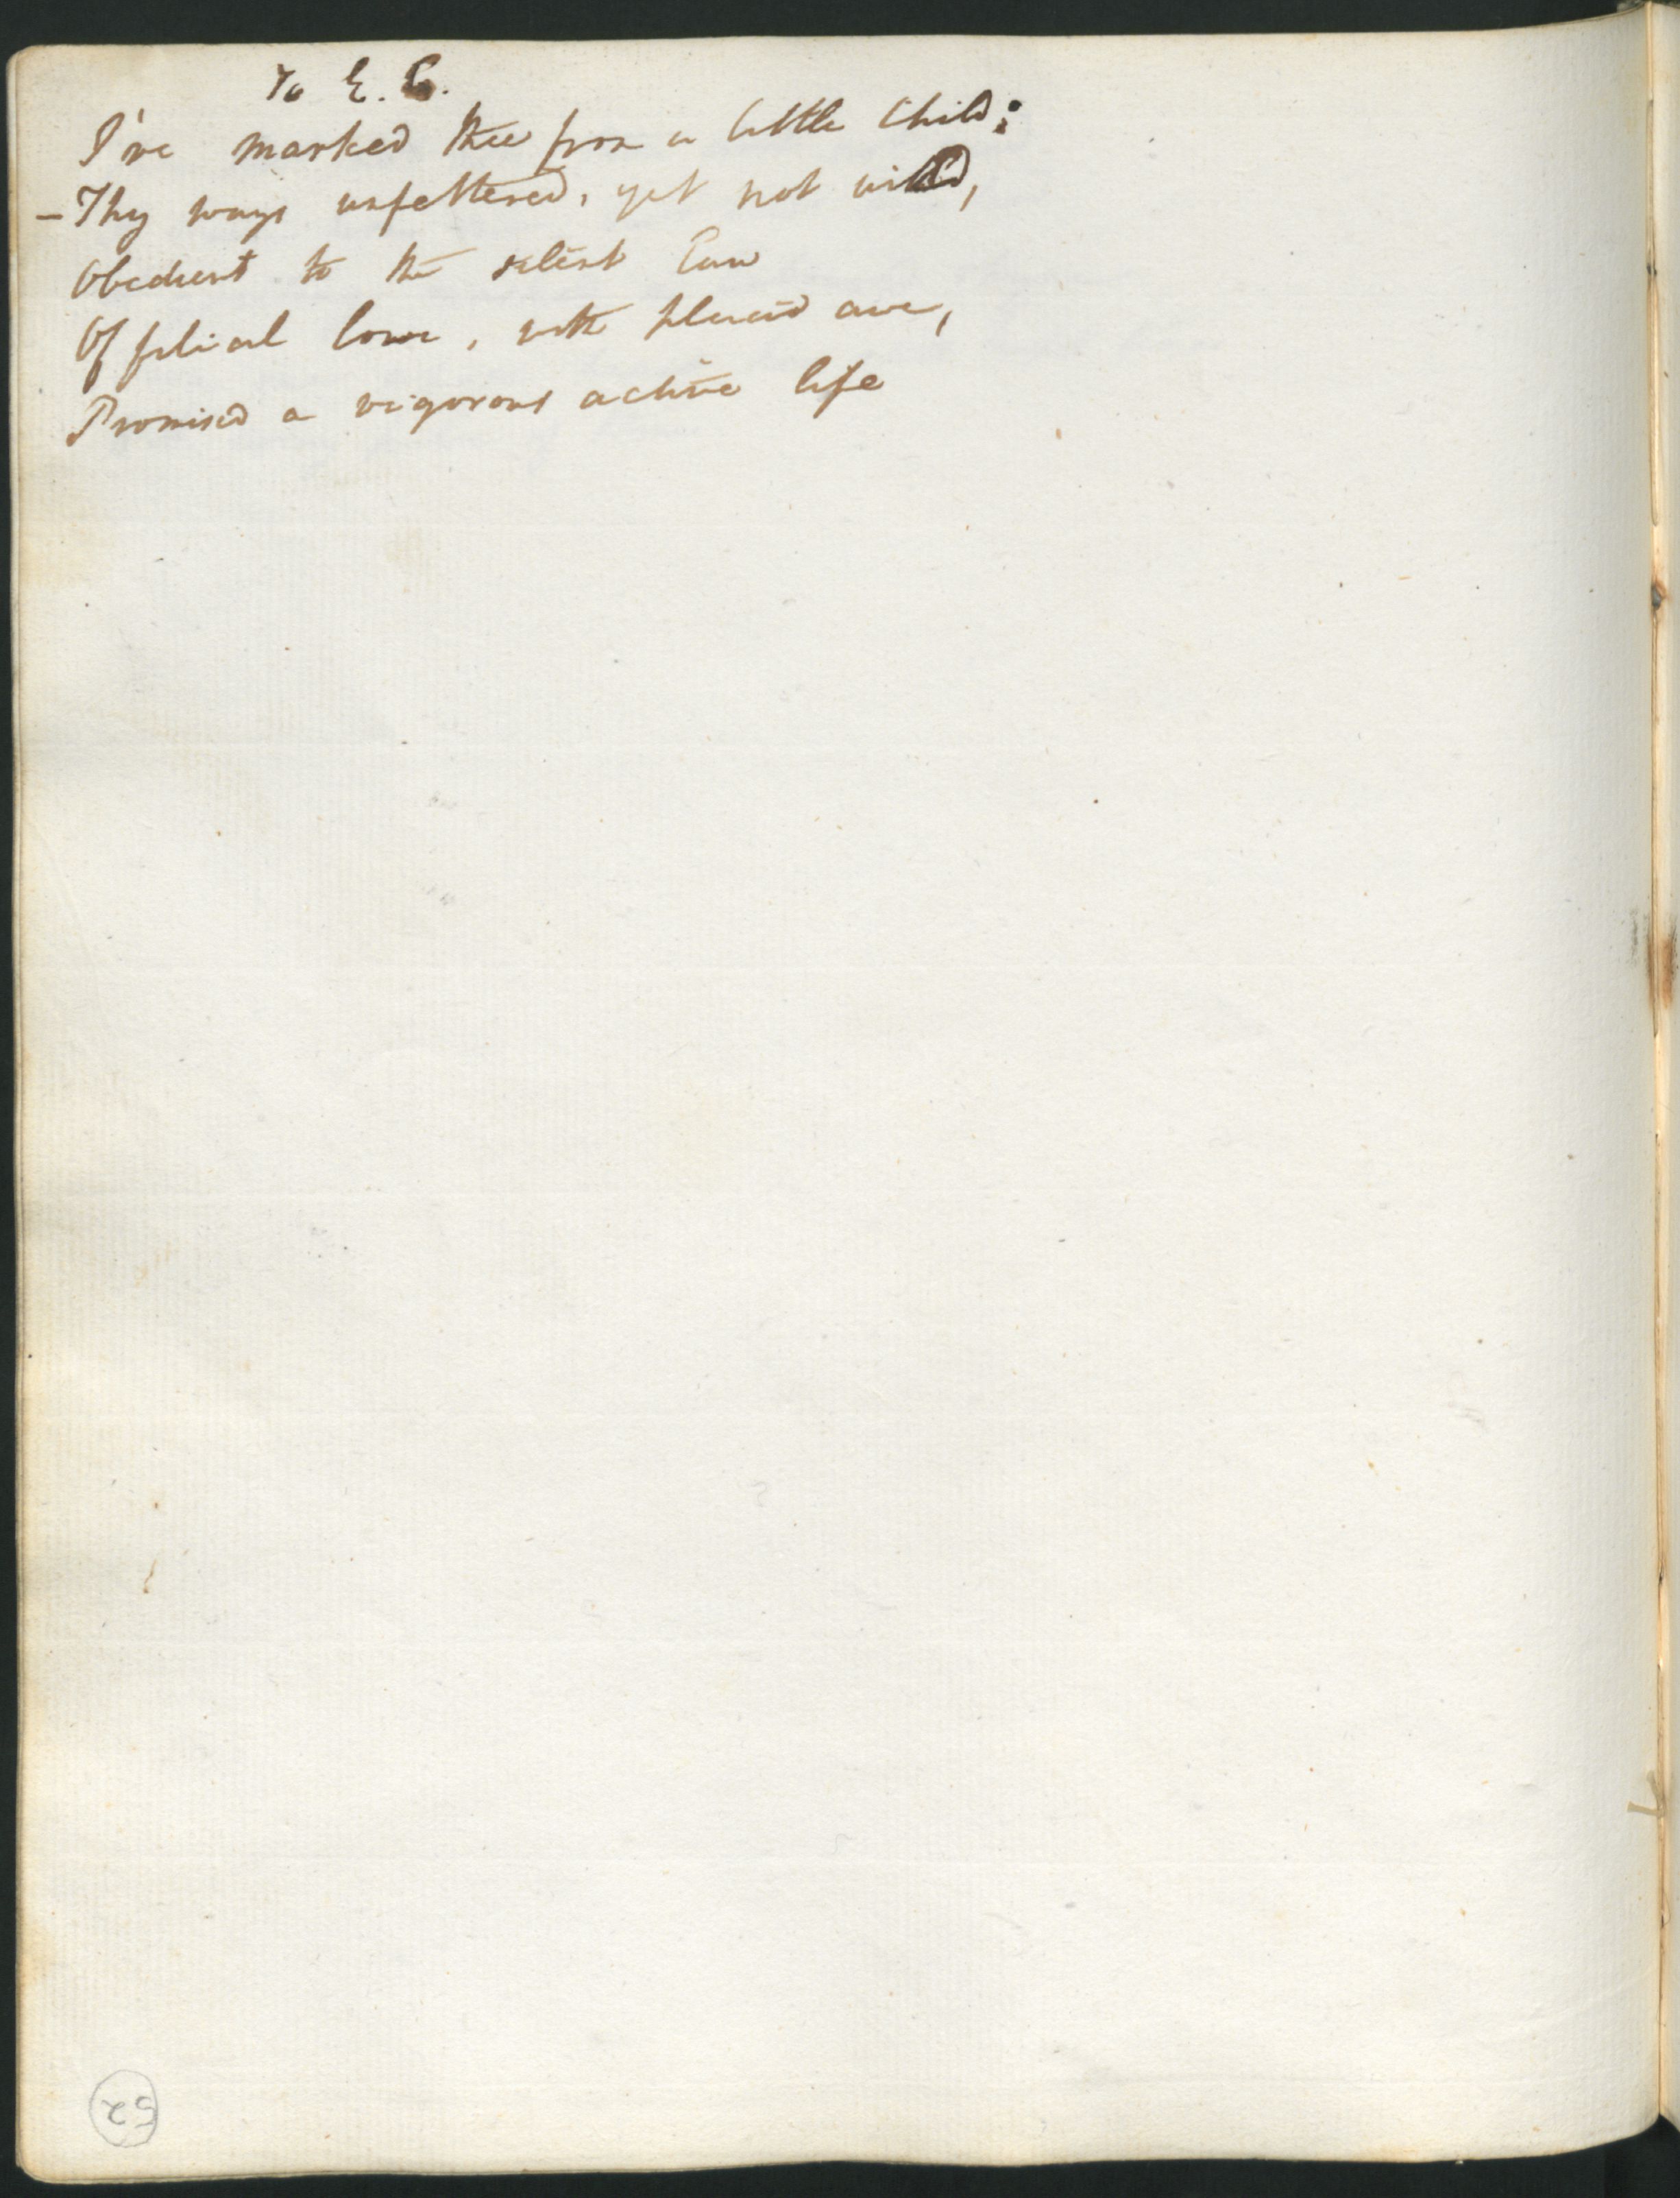 To E. C.
I've marked thee from a little Child:
– Thy ways unfettered, yet not wild,
Obedient to the silent Law
Of filial love, with placid awe,
Promised a vigorous active life
52